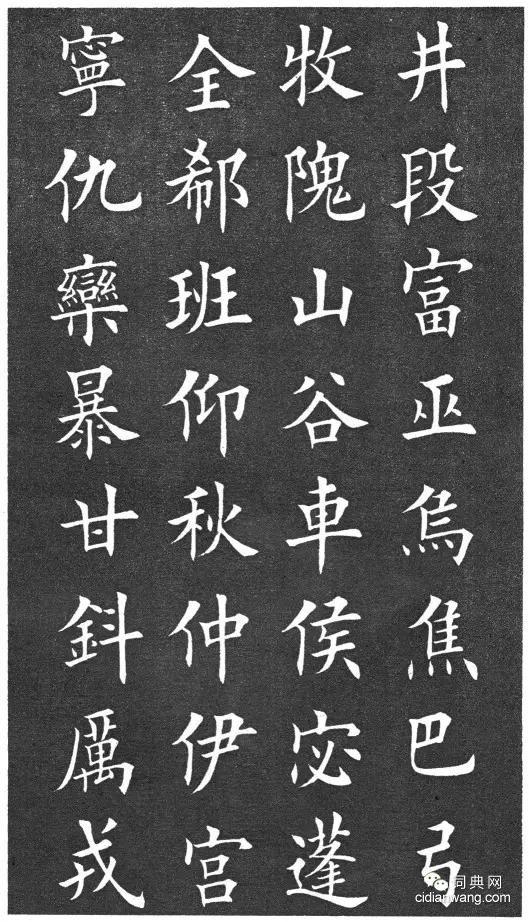 井段富巫烏焦巴弓
牧隗山谷車侯宓蓬
全郗班仰秋仲伊宫
寧仇欒暴甘鈄厲戎
词典网
cidianwang.com